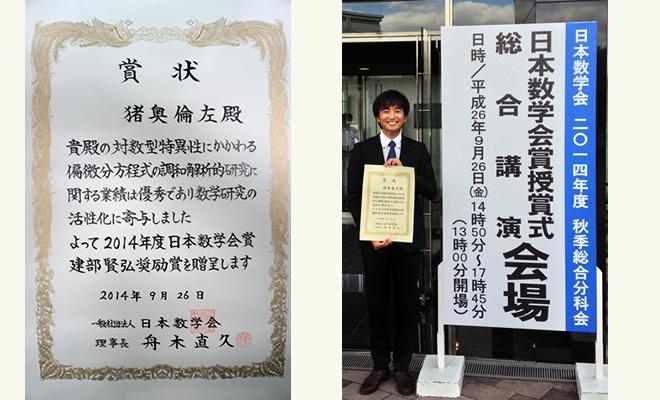 賞状
猪奥倫左殿
貴殿の対数型特異性にかかわる
偏微分方程式の調和解析的研究に
関する業績は優秀であり数学研究の
活性化に寄与しました
よって2014年度日本数学会賞
建部賢弘奨励賞を贈呈します
2014年9月26日
一般社団法人 日本数学会
理事長 舟木直久
日本数学会 二〇一四年度 秋季総合分科会
日本数学会賞授賞式
総合講演
会場
日時/平成26年9月26日(金)14時50分〜17時45分
(13時00分開場)
賞状